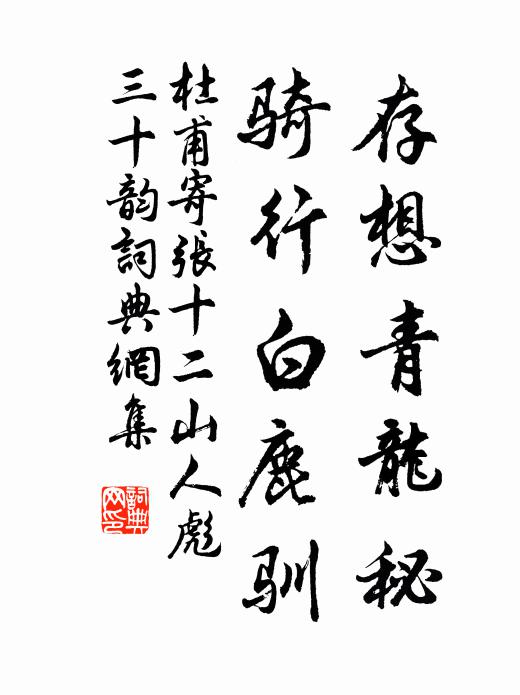 存想青龍秘
骑行白鹿驯
杜甫寄張十二山人彪
三十韵詞典網集
詞典网印